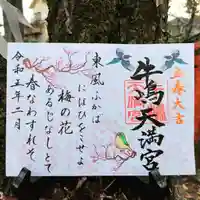 立春大吉
牛嶋天満宮
東風ふかば
にほひをこせよ
梅の花
あるじなしとて
春なわすれそ
令和五年二月